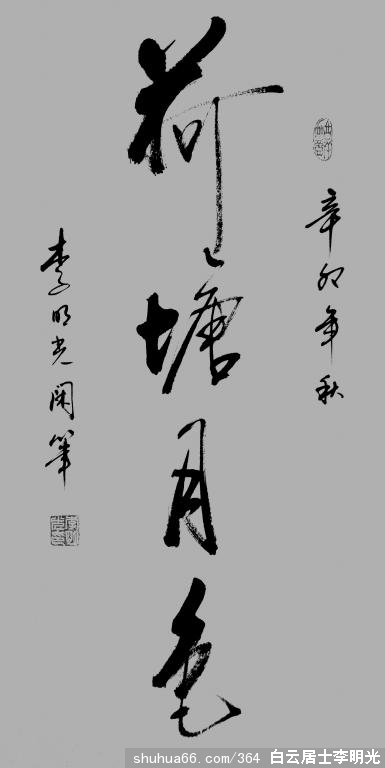 辛卯年秋
荷塘月色
李明光闲笔
shuhua66.com/364 白云居士李明光